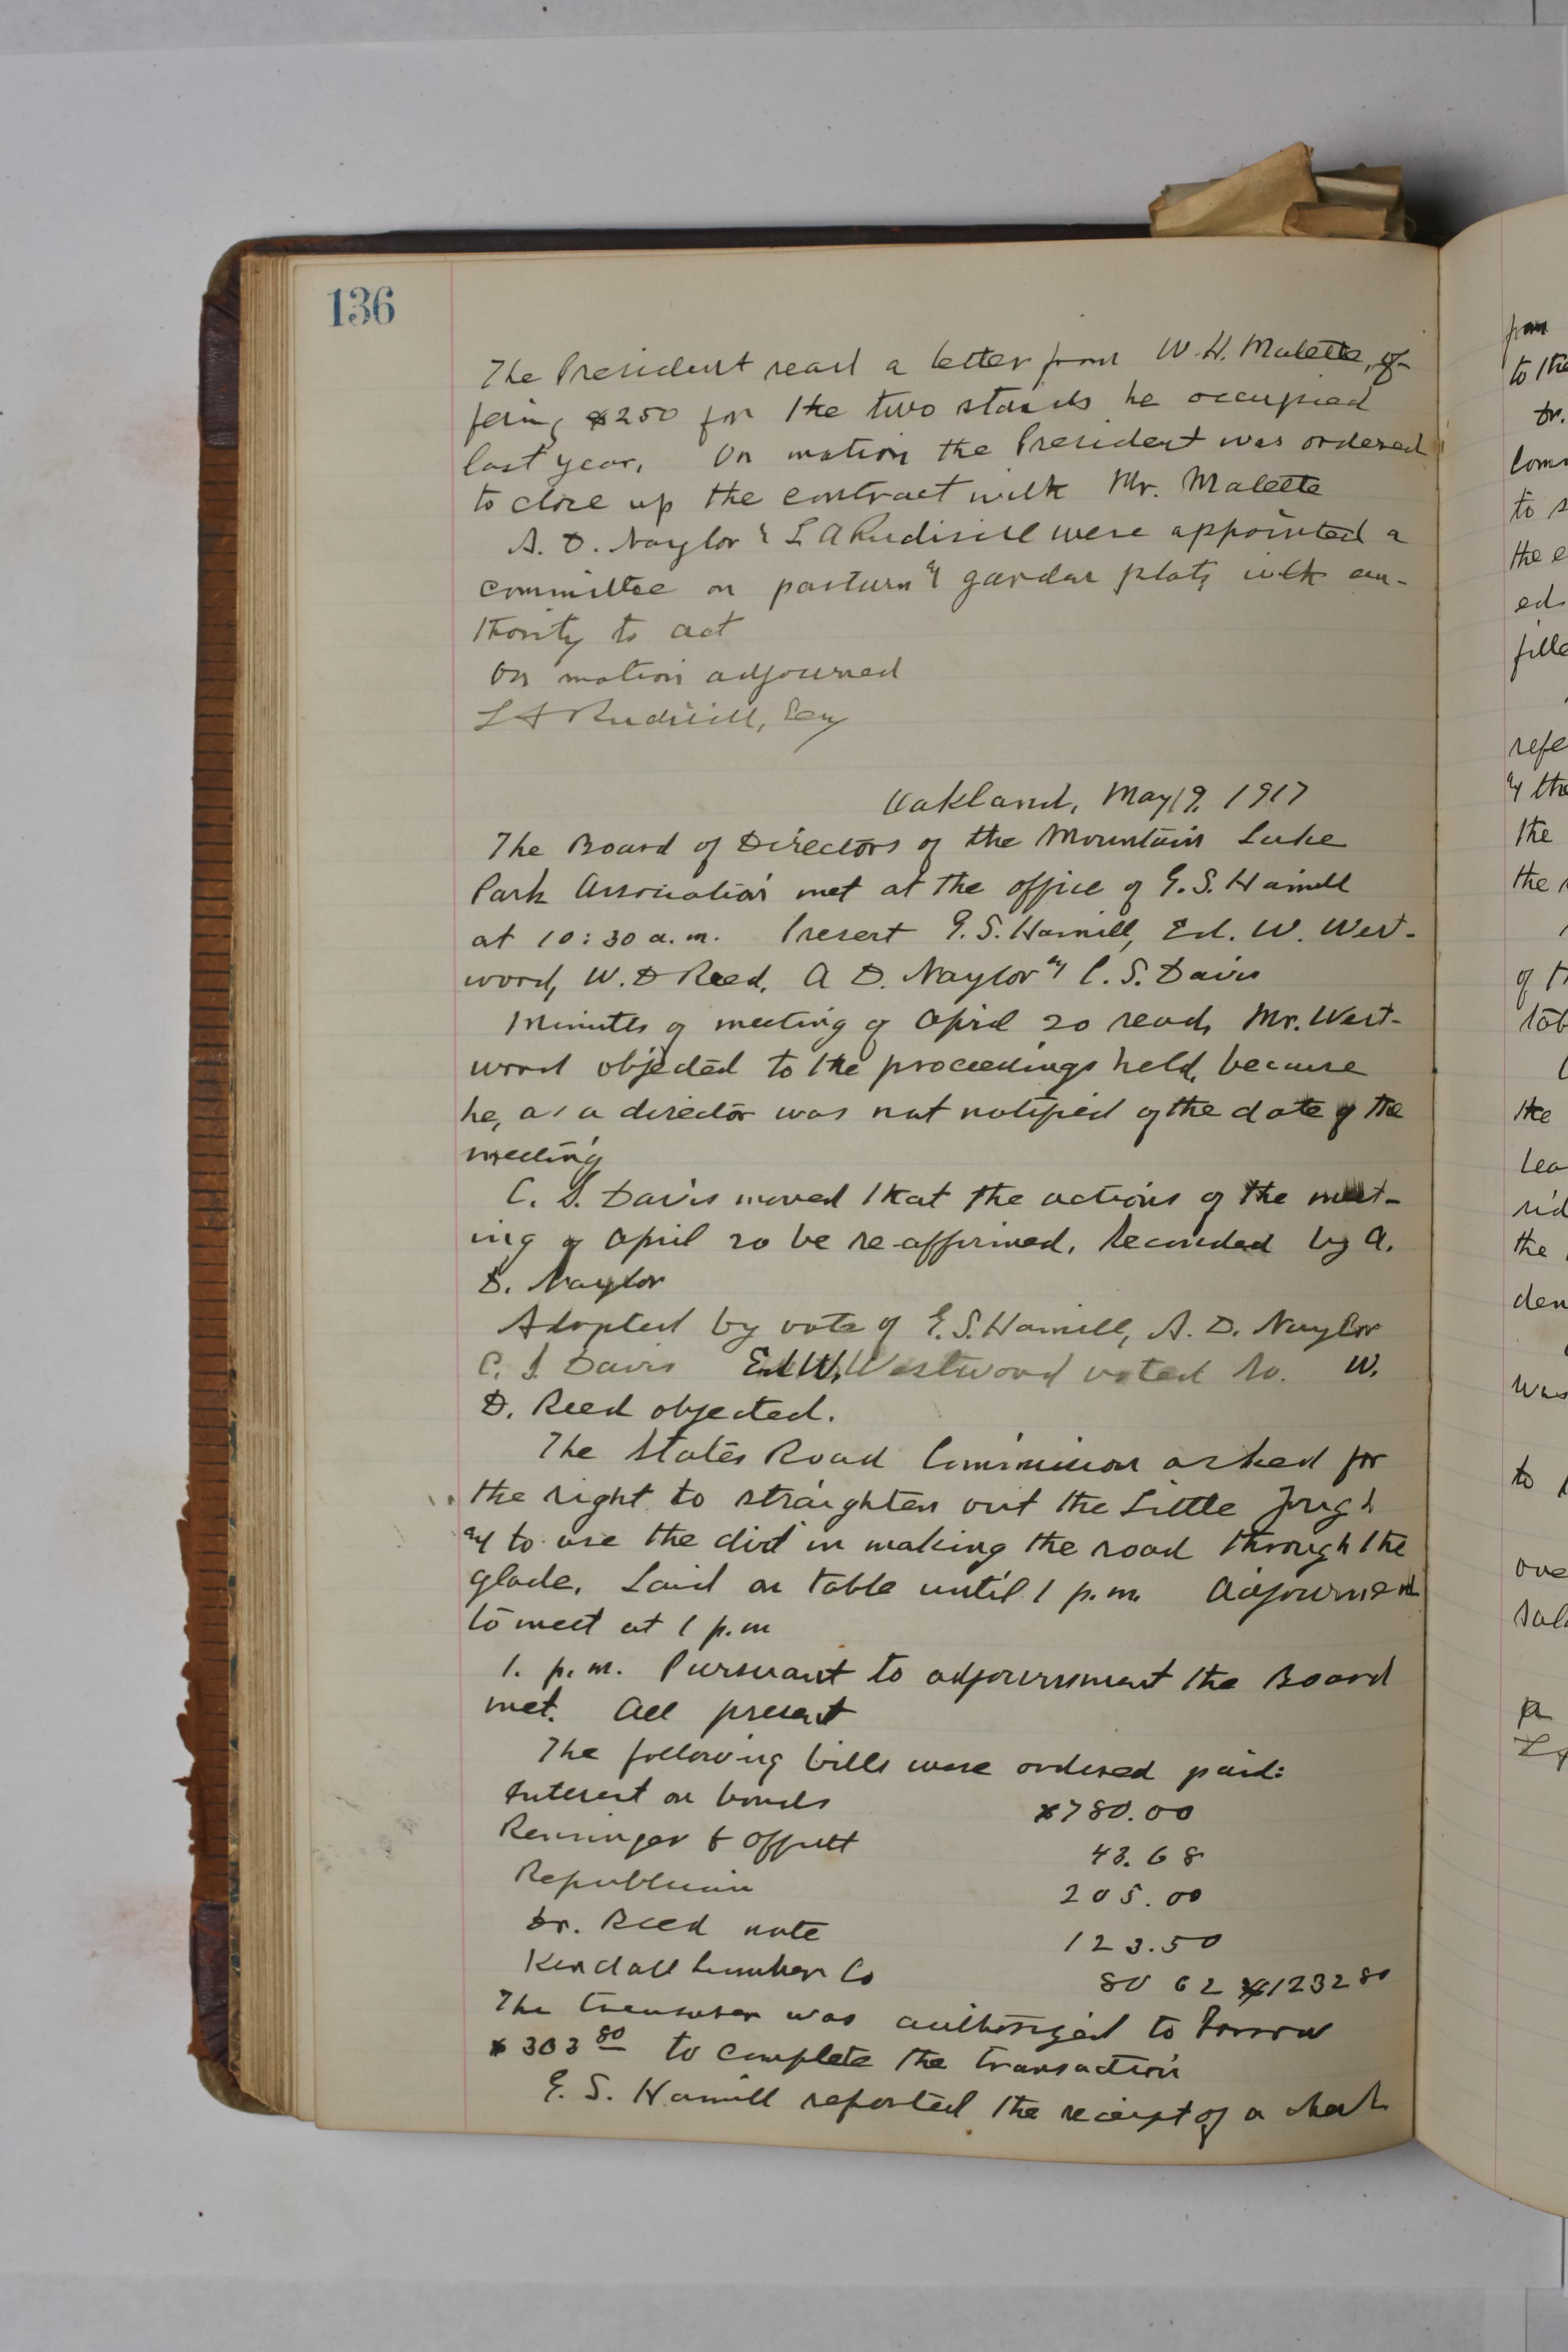 136
The President read a letter from W. H. Malette, of-
fering $250 for the two stands he occupied
last year. On motion the President was ordered
to close up the contract with Mr. Malette
A. D. Naylor & L A Rudisill were appointed a
committee on pasture & garden plots with au-
thority to act
On motion adjourned
L A Rudisill, Secy
Oakland, May 19, 1917
The Board of Directors of the Mountain Lake
Park Association met at the office of G. S. Hamill
at 10:30 a.m. Present G. S. Hamill, Ed. W. West-
wood, W. D Reed, A D. Naylor & C. S. Davis
Minutes of meeting of April 20 read, Mr. West-
wood objected to the proceedings held, because
he, as a director was not notified of the date of the
meeting
C. S. Davis moved that the actions of the meet-
ing of April 20 be re-affirmed. Seconded by A.
D. Naylor
Adopted by vote of G. S. Hamill, A. D. Naylor
C. S. Davis Ed W. Westwood voted No. W.
D. Reed objected.
The States Road Commission asked for
the right to straighten out the Little Yough
& to use the dirt in making the road through the
glade. Laid on table until 1 p.m. Adjourned
to meet at 1 p.m
1. p.m. Pursuant to adjournment the Board
met. All present
The following bills were ordered paid:
Interest on bonds $780.00
Renninger & Offutt 43.68
Republican 205.00
Dr. Reed note 123.50
Kendall Lumber Co 80 62 $1232 80
The treasurer was authorized to borrow
$303 80 to complete the transaction
G. S. Hamill reported the receipt of a check
from
to the
Dr.
Com
to s
the e
ed
fille
refe
& the
the
the
of th
tab
the
Lea
rid
the
den
was
to
ove
Sal